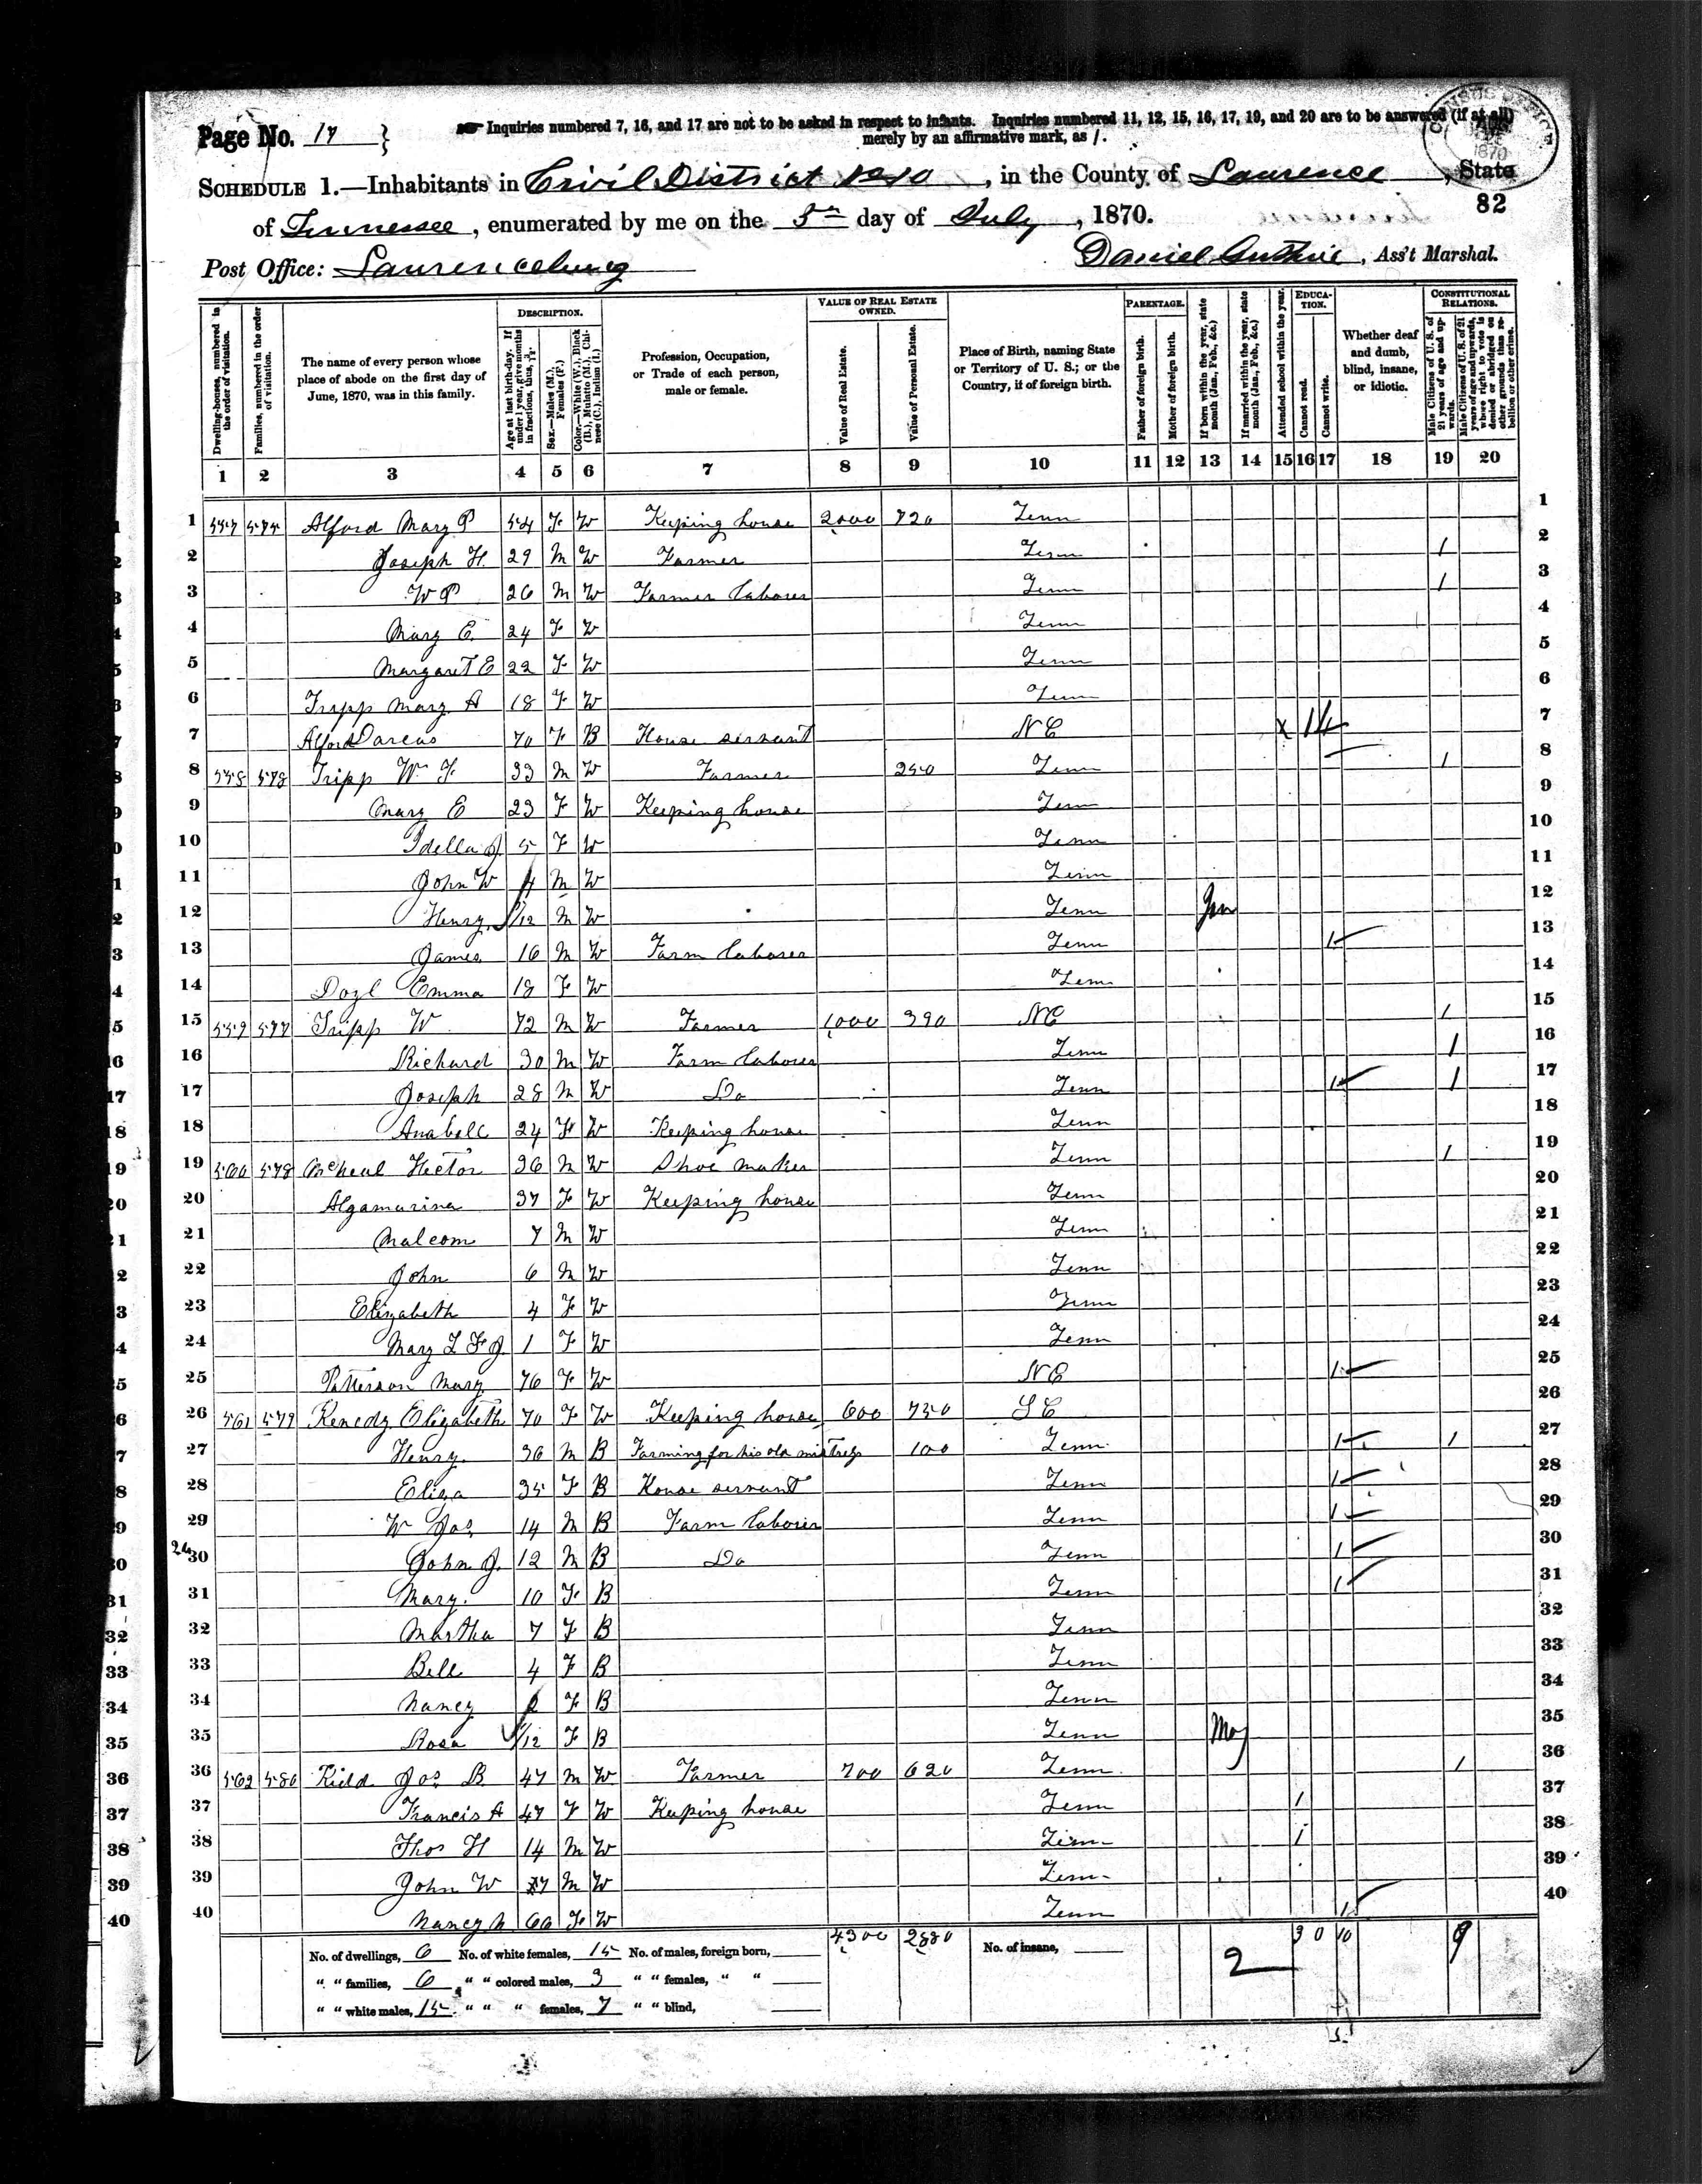 Page No. 17 }
Inquiries numbered 7, 16, and 17 are not to be asked in respect to infants. Inquiries numbered 11, 12, 15, 16, 17, 19, and 20 are to be answered (if at all)
merely by an affirmative mark, as /.
SCHEDULE 1.—Inhabitants in Civil District No 10, in the County of Laurence, State
of Tennessee, enumerated by me on the 5th day of July, 1870.
82
Post Office: Laurenceburg
Daniel Guthrie, Ass't Marshal.
Dwelling-houses, numbered in the order of visitation.
Families, numbered in the order of visitation.
The name of every person whose place of abode on the first day of June, 1870, was in this family.
DESCRIPTION.
Age at last birth-day. If under 1 year, give months in fractions, thus, 3/12.
Sex.—Males (M.), Females (F.)
Color.—White (W.), Black (B.), Mulatto (M.), Chinese (C.), Indian (I.)
Profession, Occupation, or Trade of each person, male or female.
VALUE OF REAL ESTATE OWNED.
Value of Real Estate.
Value of Personal Estate.
Place of Birth, naming State or Territory of U. S.; or the Country, if of foreign birth.
PARENTAGE.
Father of foreign birth.
Mother of foreign birth.
If born within the year, state month (Jan., Feb., &c.)
If married within the year, state month (Jan., Feb., &c.)
Attended school within the year.
EDUCATION.
Cannot read.
Cannot write.
Whether deaf and dumb, blind, insane, or idiotic.
CONSTITUTIONAL RELATIONS.
Male Citizens of U. S. of 21 years of age and upwards.
Male Citizens of U. S. of 21 years of age and upwards, where right to vote is denied or abridged on other grounds than rebellion or other crime.
1 2 3 4 5 6 7 8 9 10 11 12 13 14 15 16 17 18 19 20
1 557 575 Alford Mary P 54 F W Keeping house 2000 720 Tenn 1
2 Joseph H. 29 M W Farmer Tenn / 2
3 W P 26 M W Farmer laborer Tenn / 3
4 Mary E. 24 F W Tenn 4
5 Margaret E 22 F W Tenn 5
6 Tripp Mary A 18 F W Tenn 6
7 Alford Darcus 70 F B House servant NC 7
8 558 576 Tripp Wm F. 33 M W Farmer 250 Tenn / 8
9 Mary E 23 F W Keeping house Tenn 9
10 Idella J. 5 F W Tenn 10
11 John W 4 M W Tenn 11
12 Henry /12 M W Tenn Jan 12
13 James 16 M W Farm laborer Tenn / 13
14 Doyl Emma 18 F W Tenn 14
15 559 577 Tripp W 72 M W Farmer 1000 390 NC / 15
16 Richard 30 M W Farm laborer Tenn / 16
17 Joseph 28 M W Do Tenn / / 17
18 Anabell 24 F W Keeping house Tenn 18
19 560 578 McNeal Hector 36 M W Shoe maker Tenn / 19
20 Algamurina 37 F W Keeping house Tenn 20
21 Malcom 7 M W Tenn 21
22 John 6 M W Tenn 22
23 Elizabeth 4 F W Tenn 23
24 Mary L F J. 1 F W Tenn 24
25 Patterson Mary 76 F W NC / 25
26 561 579 Kenedy Elizabeth 70 F W Keeping house 600 750 SC 26
27 Henry 36 M B Farming for his old mistress 100 Tenn / / 27
28 Eliza 35 F B House servant Tenn / 28
29 W Jas 14 M B Farm laborer Tenn / 29
30 John J. 12 M B Do Tenn / 30
31 Mary. 10 F B Tenn / 31
32 Martha 7 F B Tenn 32
33 Bell 4 F B Tenn 33
34 Nancy 2 F B Tenn 34
35 Rosa 1/12 F B Tenn May 35
36 562 580 Kidd Jos B 47 M W Farmer 700 620 Tenn / 36
37 Francis A 47 F W Keeping house Tenn / 37
38 Thos H 14 M W Tenn / 38
39 John W 7 M W Tenn 39
40 Nancy N 60 F W Tenn / 40
No. of dwellings, 6 No. of white females, 15 No. of males, foreign born, 4300 2880 No. of insane, 2 3 0 10 9
" " families, 6 " " colored males, 3 " " females, " "
" " white males, 15 " " " females, 7 " " blind,